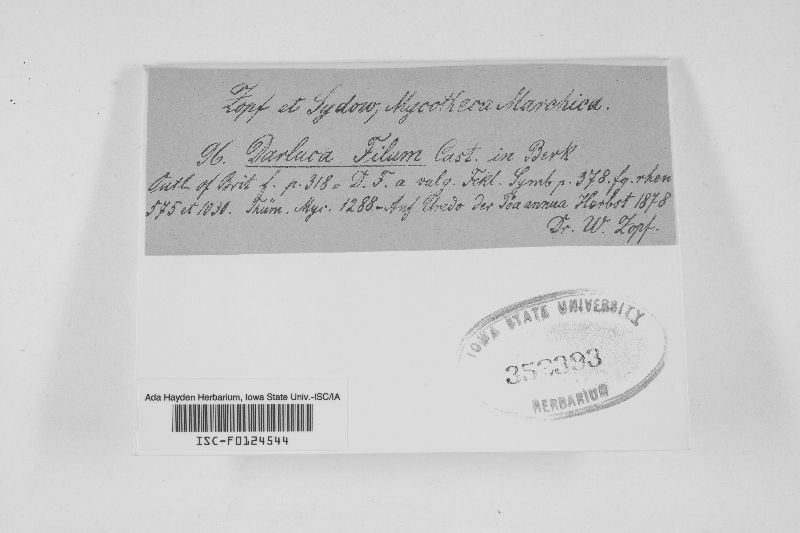 Zopf et Sydow, Mycotheca Marchica.
96. Darluca Filum Cast. in Berk
Outl. of Brit f. p. 318 = D. F. a vulg. Fckl. Symb p. 378. fg. rhen
575 et 1030. Thüm. Myc. 1288 - Auf Uredo der Poa annua Herbst 1878
Dr. W. Zopf.
IOWA STATE UNIVERSITY
352393
HERBARIUM
Ada Hayden Herbarium, Iowa State Univ.-ISC/IA
ISC-F0124544